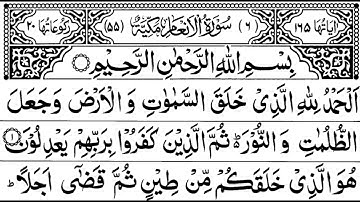 اٰیَاتُهَا ۱۶۵ (۶) سُوْرَةُ الْاَنْعَامِ مَكِّیَّةٌ (۵۵) رُكُوْعَاتُهَا ۲۰
بِسْمِ اللّٰهِ الرَّحْمٰنِ الرَّحِیْمِ
اَلْحَمْدُ لِلّٰهِ الَّذِیْ خَلَقَ السَّمٰوٰتِ وَ الْاَرْضَ وَ جَعَلَ
الظُّلُمٰتِ وَ النُّوْرَ ؕ۬ ثُمَّ الَّذِیْنَ كَفَرُوْا بِرَبِّهِمْ یَعْدِلُوْنَ ۱
هُوَ الَّذِیْ خَلَقَكُمْ مِّنْ طِیْنٍ ثُمَّ قَضٰۤی اَجَلًا ؕ